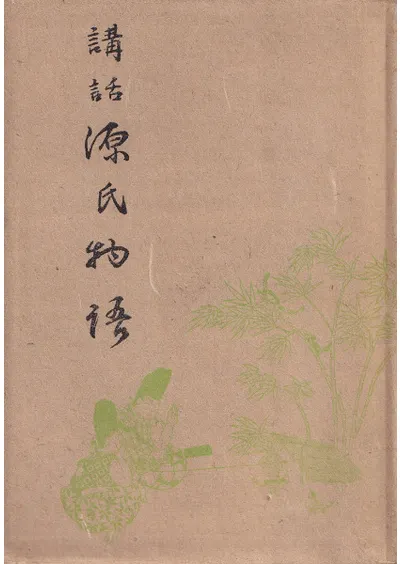 講話源氏物語